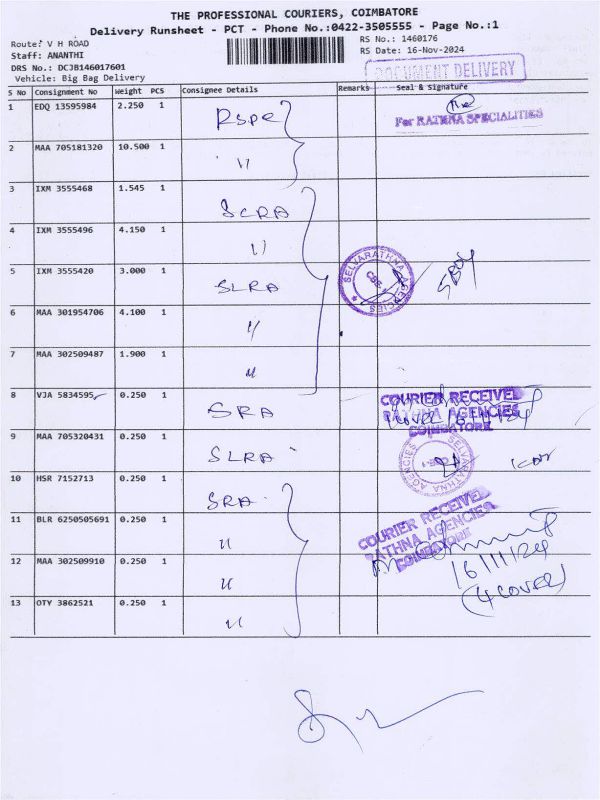 THE PROFESSIONAL COURIERS, COIMBATORE
Delivery Runsheet - PCT - Phone No.:0422-3505555 - Page No.:1
Route: V H ROAD
RS No.: 1460176
Staff: ANANTHI
RS Date: 16-Nov-2024
DRS No.: DCJB146017601
DOCUMENT DELIVERY
Vehicle: Big Bag Delivery
S No Consignment No Weight PCS Consignee Details Remarks Seal & Signature
1 EDQ 13595984 2.250 1 RSPC
For RATHNA SPECIALITIES
2 MAA 705181320 10.500 1 "
3 IXM 3555468 1.545 1 SCRA
4 IXM 3555496 4.150 1 "
5 IXM 3555420 3.000 1 SLRA
SELVARATHNA AGENCIES
CBE
6 MAA 301954706 4.100 1 "
7 MAA 302509487 1.900 1 "
8 VJA 5834595 0.250 1 SRA
COURIER RECEIVED
RATHNA AGENCIES
COIMBATORE
9 MAA 705320431 0.250 1 SLRA
SELVARATHNA AGENCIES
10 HSR 7152713 0.250 1 SRA
COURIER RECEIVED
RATHNA AGENCIES
COIMBATORE
11 BLR 6250505691 0.250 1 "
16/11/24
12 MAA 302509910 0.250 1 "
(4 COVER)
13 OTY 3862521 0.250 1 "